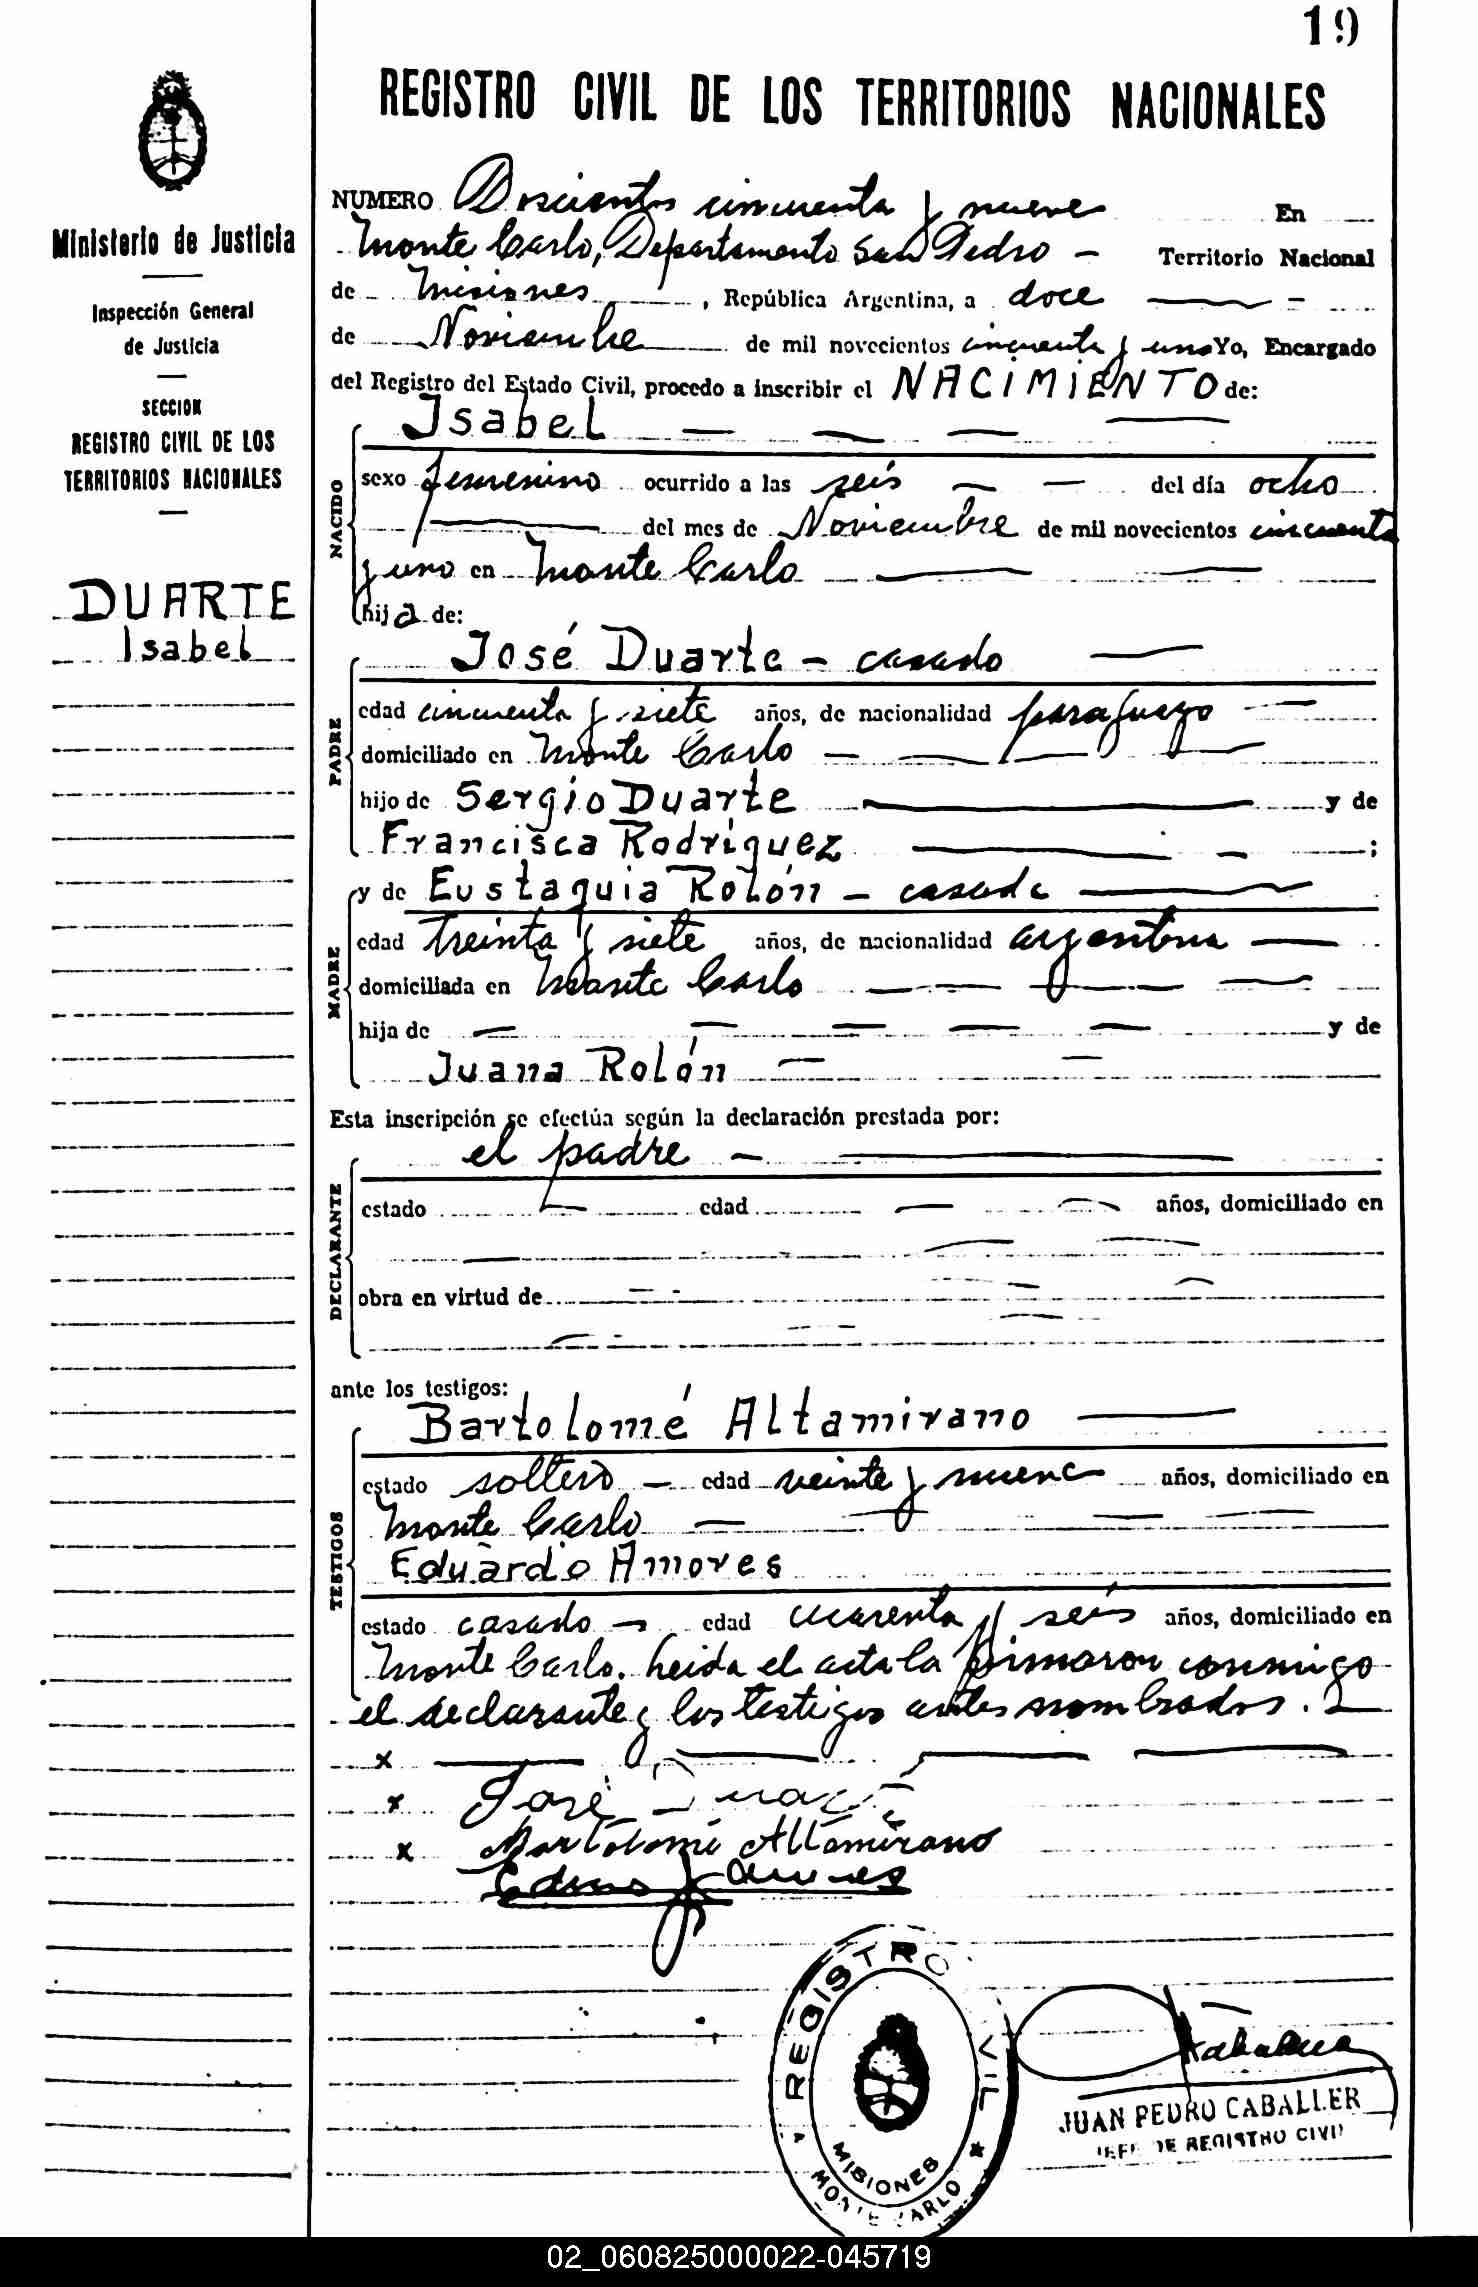 19
REGISTRO CIVIL DE LOS TERRITORIOS NACIONALES
Ministerio de Justicia
Inspección General
de Justicia
SECCION
REGISTRO CIVIL DE LOS
TERRITORIOS NACIONALES
DUARTE
Isabel
NUMERO Doscientos cincuenta y nueve En
Monte Carlo, Departamento San Pedro - Territorio Nacional
de Misiones, República Argentina, a doce
de Noviembre de mil novecientos cincuenta y uno Yo, Encargado
del Registro del Estado Civil, procedo a inscribir el NACIMIENTO de:
Isabel
NACIDO
sexo femenino ocurrido a las seis del día ocho
del mes de Noviembre de mil novecientos cincuenta
y uno en Monte Carlo
hija de:
José Duarte - casado
PADRE
edad cincuenta y siete años, de nacionalidad paraguayo
domiciliado en Monte Carlo
hijo de Sergio Duarte y de
Francisca Rodríguez ;
y de Eustaquia Rolón - casada
MADRE
edad treinta y siete años, de nacionalidad argentina
domiciliada en Monte Carlo
hija de y de
Juana Rolón
Esta inscripción se efectúa según la declaración prestada por:
el padre
DECLARANTE
estado edad años, domiciliado en
obra en virtud de
ante los testigos:
Bartolomé Altamirano
TESTIGOS
estado soltero edad veinte y nueve años, domiciliado en
Monte Carlo
Eduardo Amores
estado casado edad cuarenta y seis años, domiciliado en
Monte Carlo. Leida el acta la firmaron conmigo
el declarante y los testigos antes nombrados.
x
x José Duarte
x Bartolomé Altamirano
REGISTRO CIVIL
MISIONES
MONTE CARLO
JUAN PEDRO CABALLER
JEFE DE REGISTRO CIVIL
02_060825000022-045719